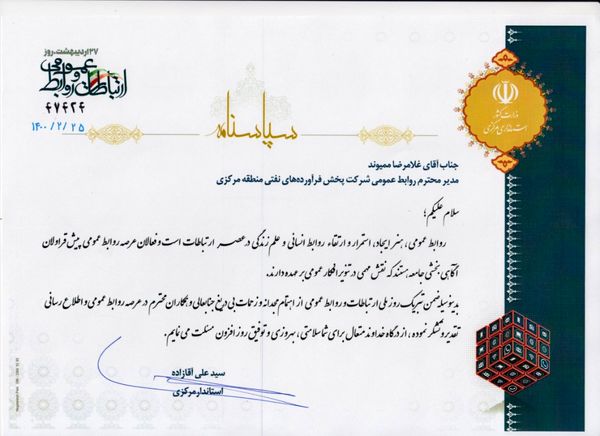 ۲۷ اردیبهشت، روز
ارتباطات و روابط عمومی
۴۷۴۲۴
۱۴۰۰/۲/۲۵
سپاسنامه
وزارت کشور
استانداری مرکزی
جناب آقای غلامرضا ممیوند
مدیر محترم روابط عمومی شرکت پخش فرآورده‌های نفتی منطقه مرکزی
سلام علیکم؛
روابط عمومی، هنر ایجاد، استمرار و ارتقاء روابط انسانی و علم زندگی در عصر ارتباطات است و فعالان عرصه روابط عمومی پیش قراولان
آگاهی بخشی جامعه هستند که نقش مهمی در تنویر افکار عمومی بر عهده دارند.
بدینوسیله ضمن تبریک روز ملی ارتباطات و روابط عمومی از اهتمام مجدانه و زحمات بی دریغ جنابعالی و همکاران محترم در عرصه روابط عمومی و اطلاع رسانی
تقدیر و تشکر نموده، از درگاه خداوند متعال برای شما سلامتی، بهروزی و توفیق روز افزون مسئلت می نمایم.
سید علی آقازاده
استاندار مرکزی